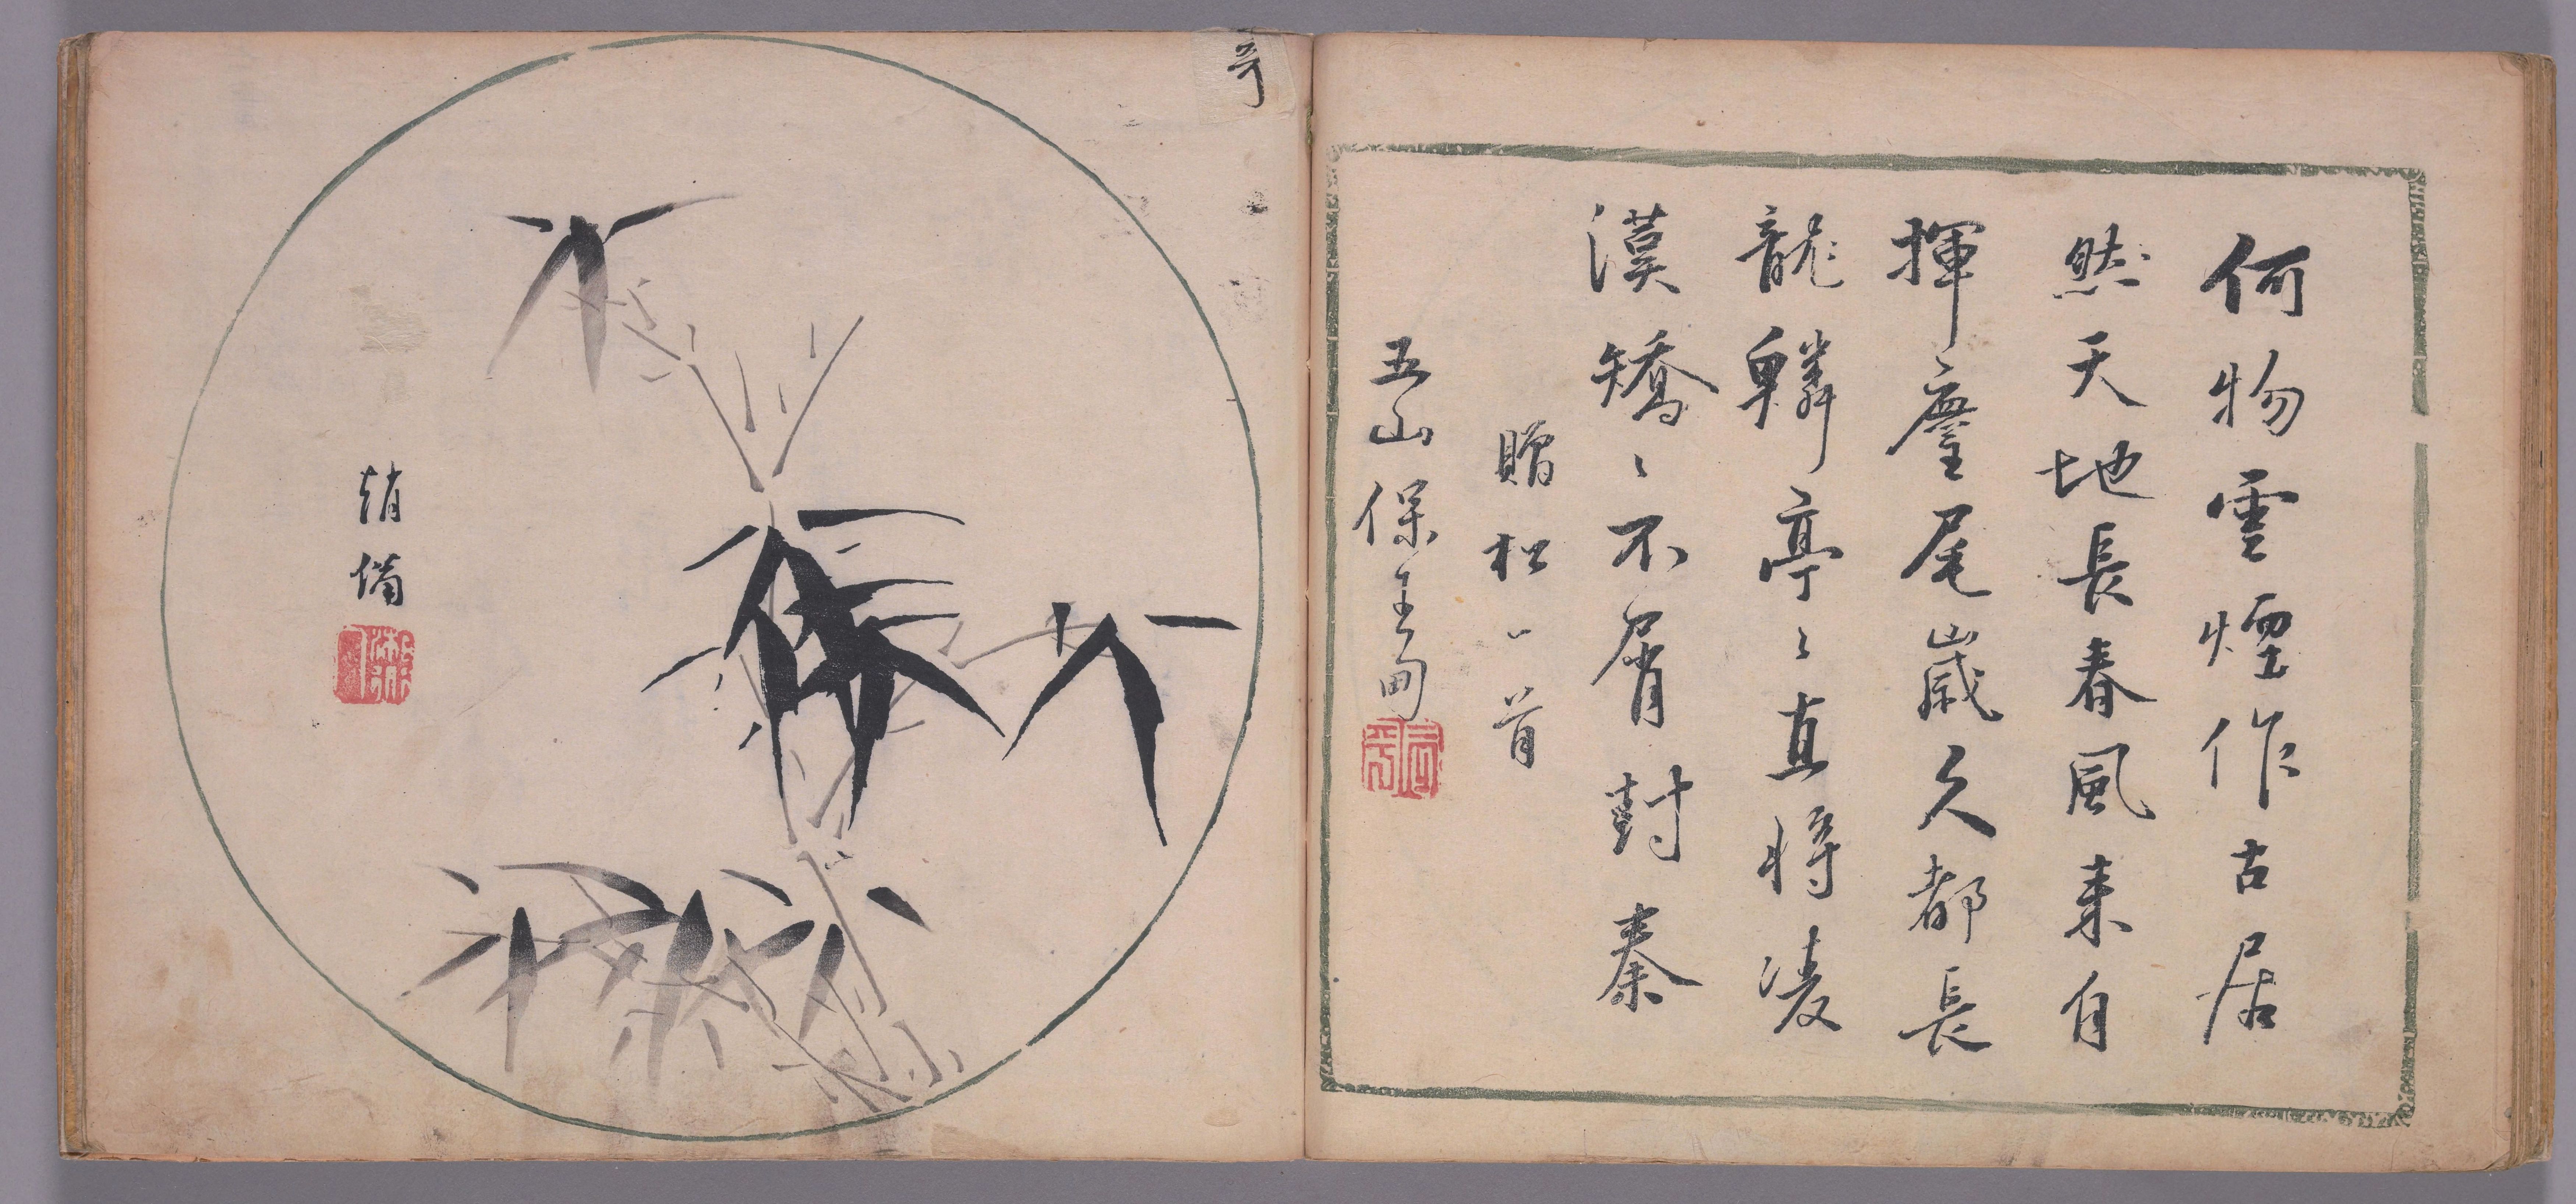 何物雲煙作古居
然天地長春風来自
揮麈尾歲久都長
龍鱗亭〻直將凌
漢矯〻不屑封秦
贈松一首
五山保
趙備